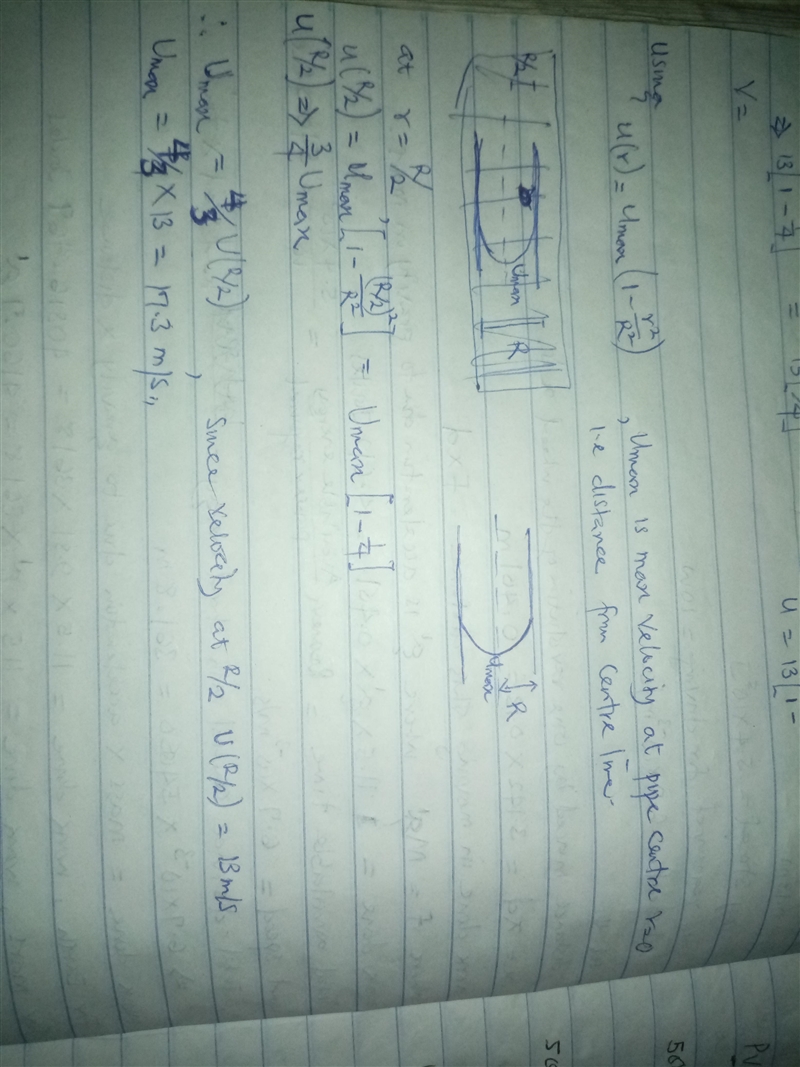 ⇒ 13[1 - 1/4] =
u = 13[1 -
V =
Using u(r) = Umax (1 - r²/R²) , Umax is max velocity at pipe centre r=0
i.e distance from centre line
R/2
Umax
R
Umax
R
at r = R/2,
u(R/2) = Umax [1 - (R/2)²/R²] = Umax [1 - 1/4]
u(R/2) ⇒ 3/4 Umax
∴ Umax = 4/3 U(R/2) , Since velocity at R/2 U(R/2) = 13 m/s,
Umax = 4/3 × 13 = 17.3 m/s,,
PV
50
50